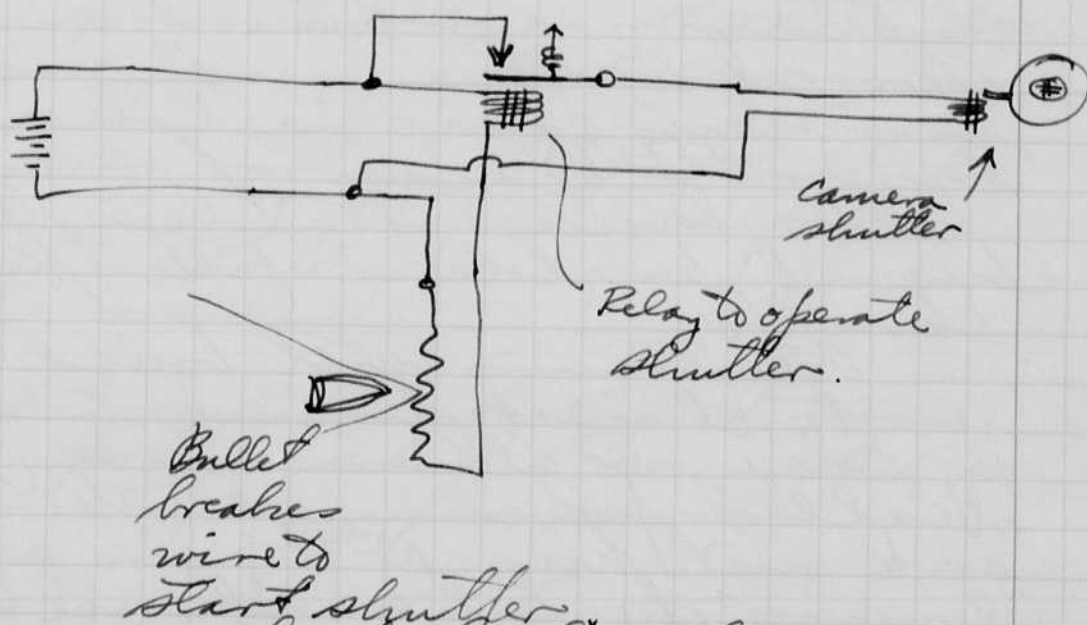 camera
shutter
Relay to operate
shutter.
Bullet
breakes
wire to
start shutter